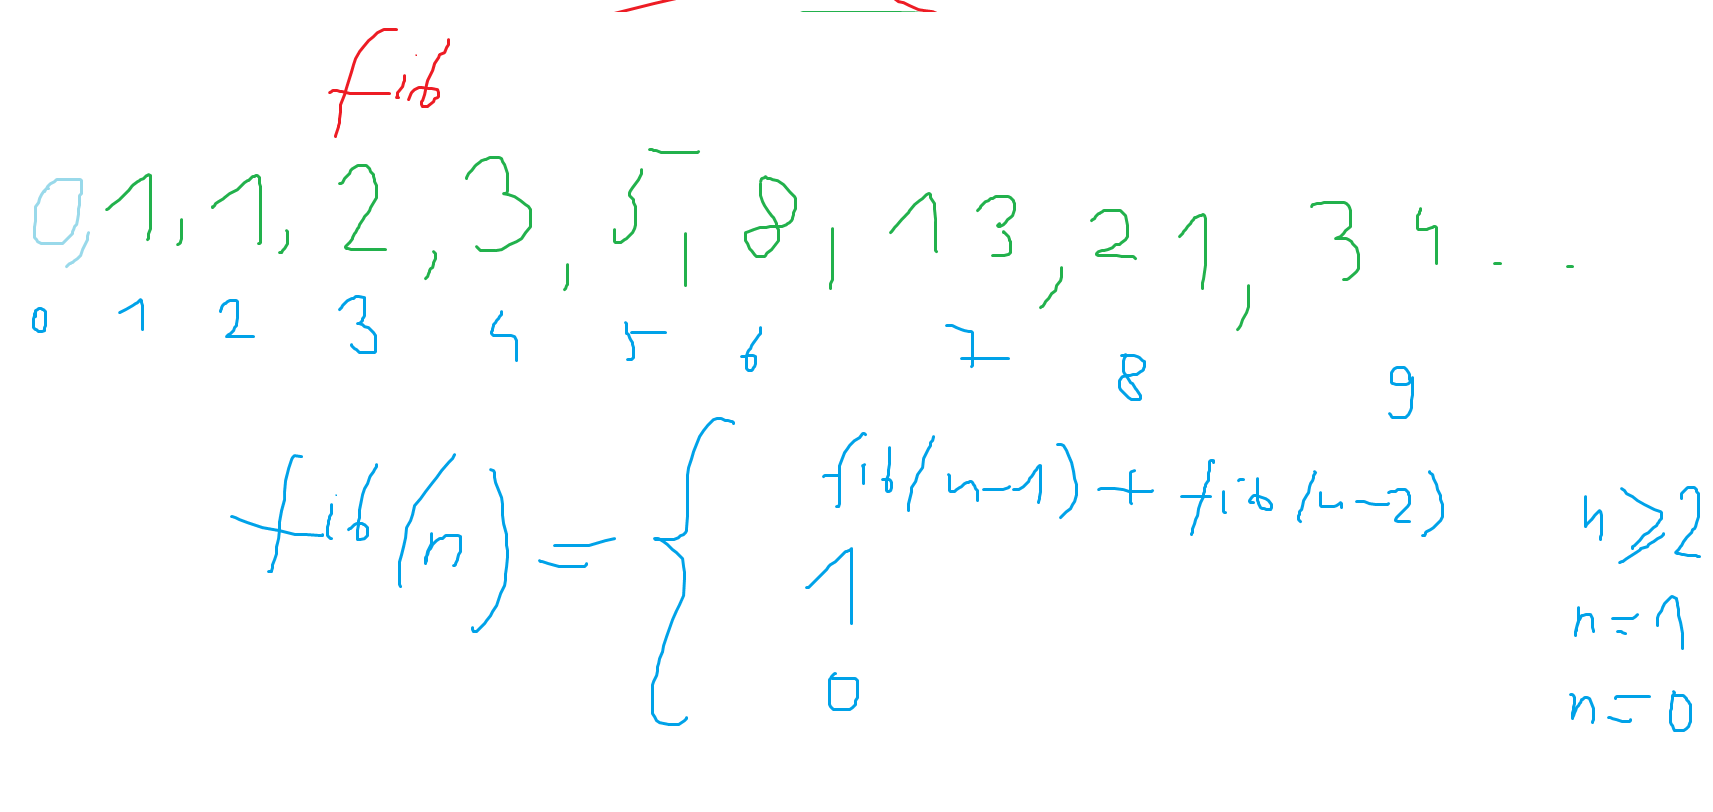 fib
0, 1, 1, 2, 3, 5, 8, 13, 21, 34 . .
0 1 2 3 4 5 6 7 8 9
fib(n) = {
fib(n-1) + fib(n-2) n ≥ 2
1 n = 1
0 n = 0